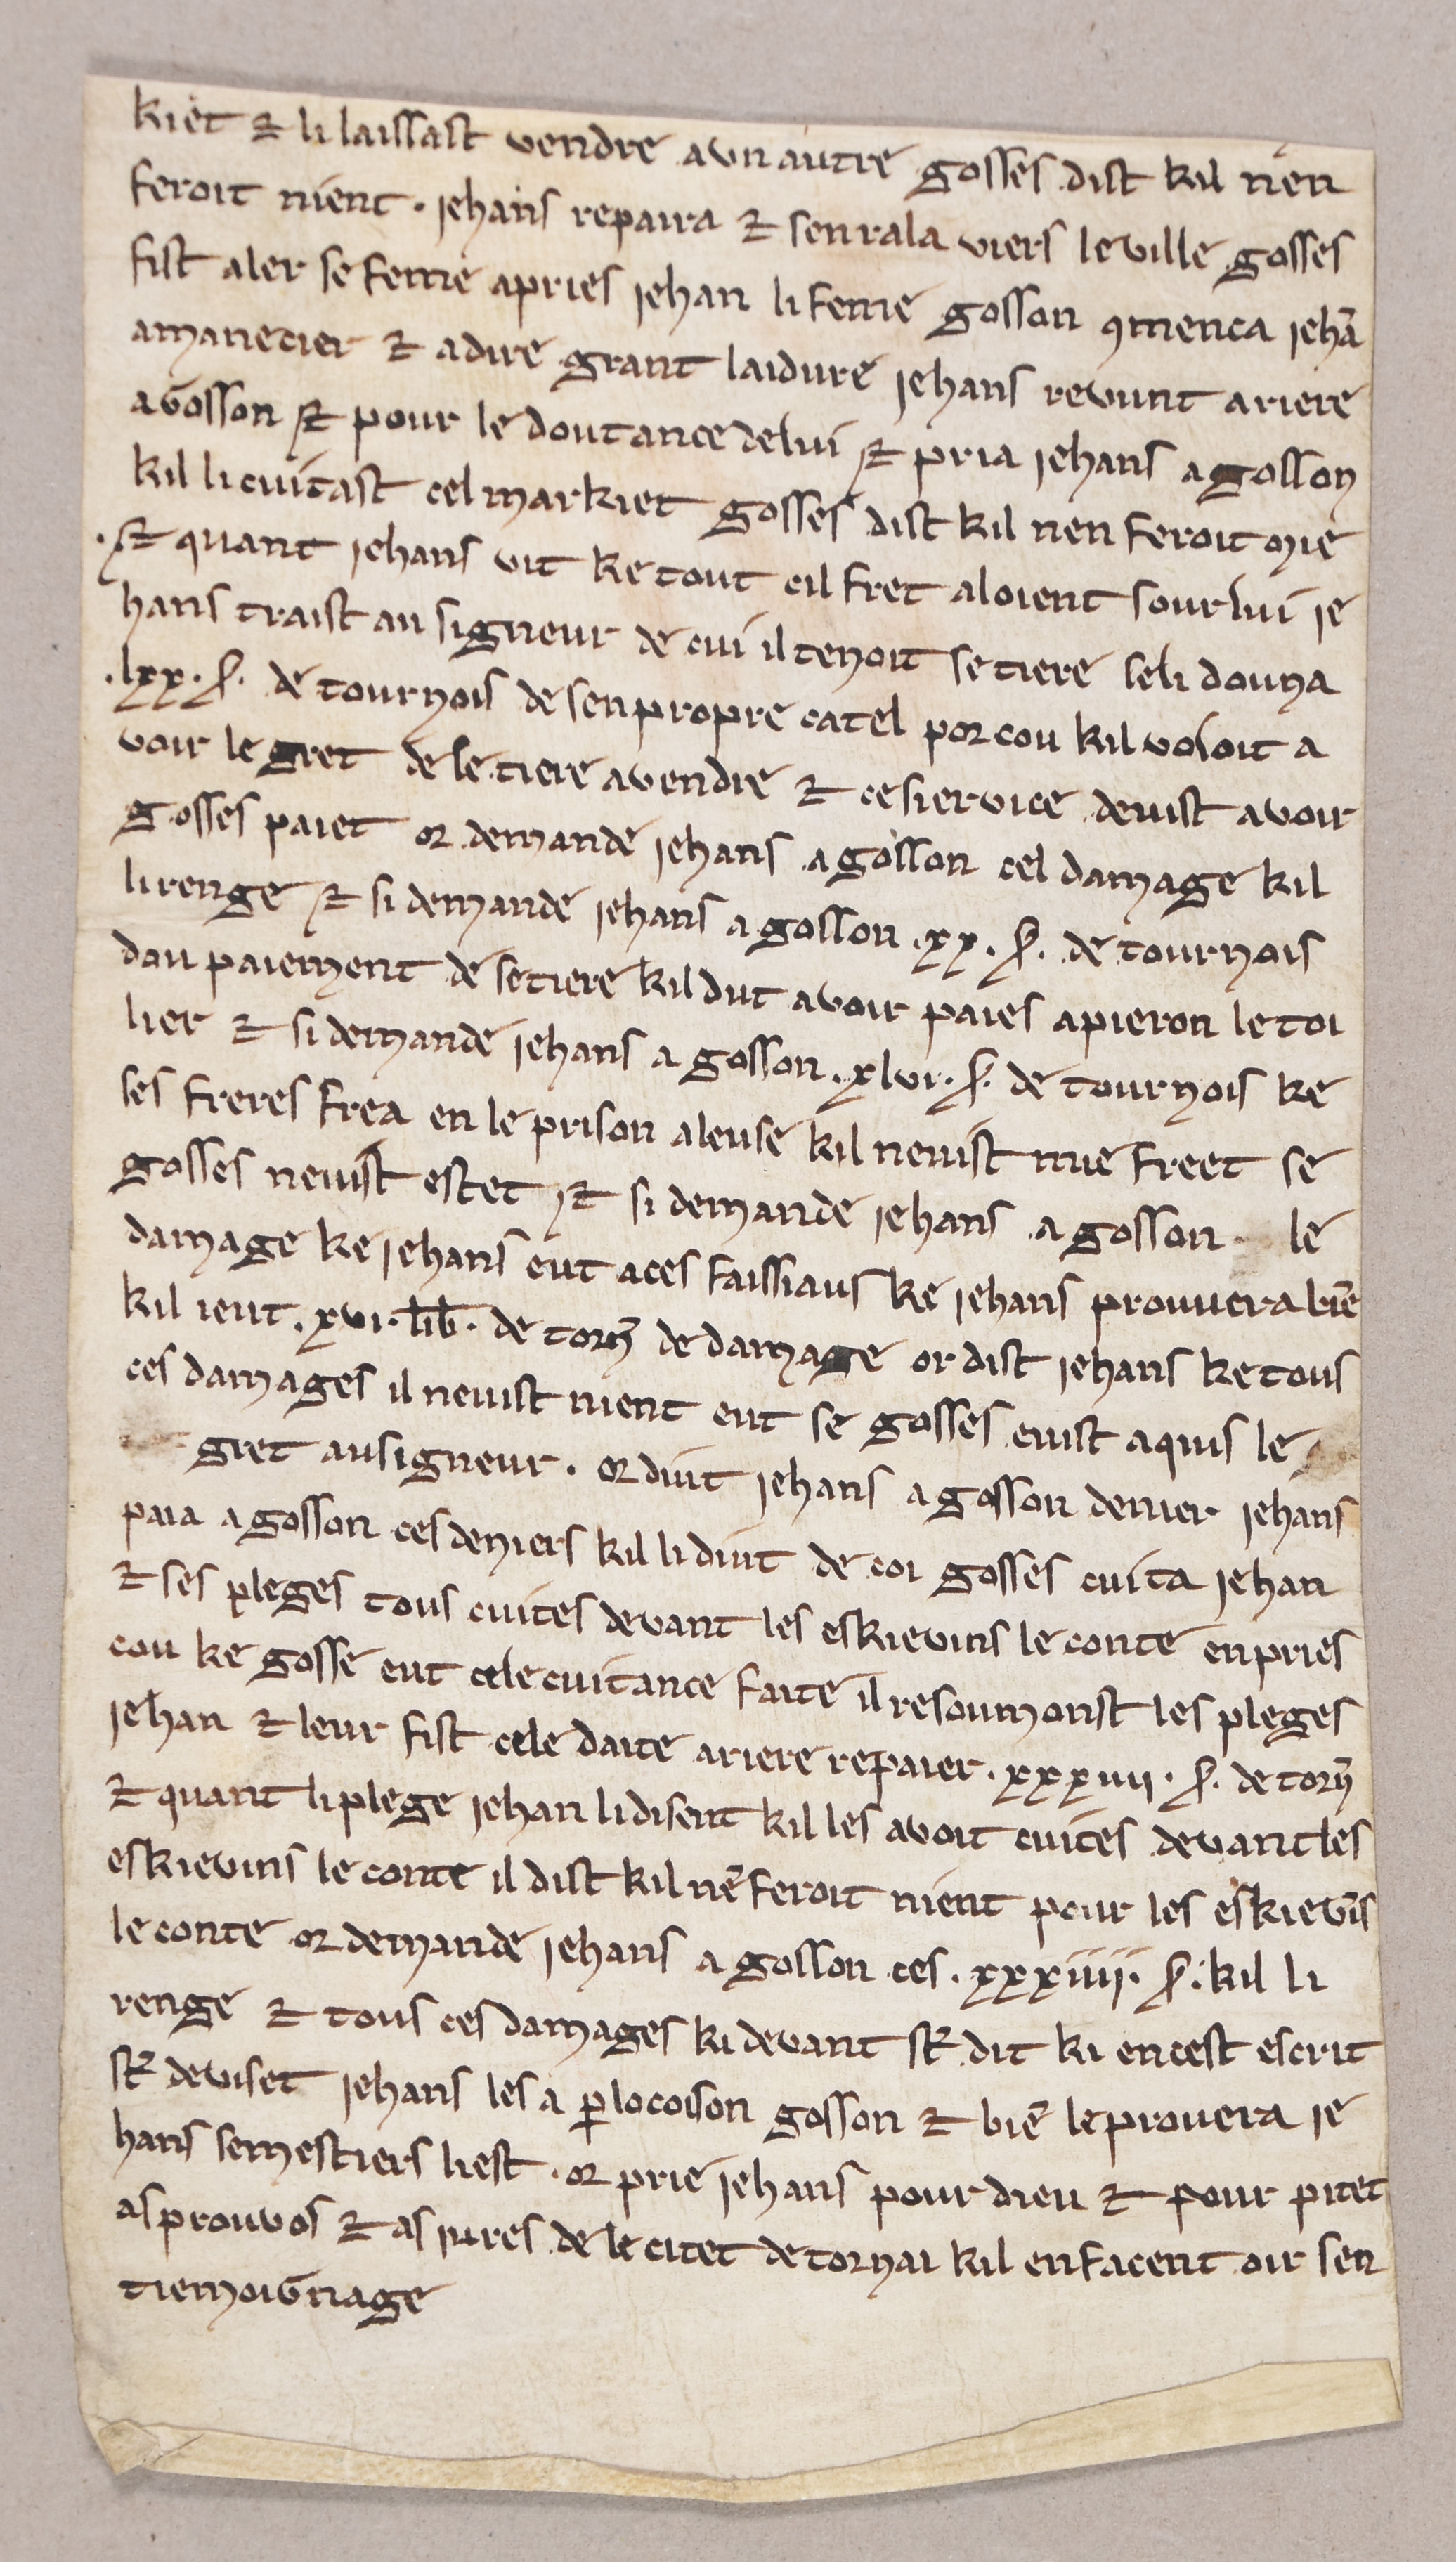 kiet ⁊ li laissast vendre a un autre gosses dist kil nen
feroit nient · jehans repaira ⁊ sen rala viers le ville gosses
fist aler se feme apries jehan li feme gosson ꝯmenca jehā
a manecier ⁊ a dire grant laidure jehans revunt ariere
a Gosson ⁊ pour le doutance de lui ⁊ pria jehans a gosson
kil li cuitast cel markiet gosses dist kil nen feroit mie
· ⁊ quant jehans vit ke tout cil fret aloient sour lui je
hans traist au signeur de cui il tenoit se tiere se li douna
·lxx· s̄· de tournois de sen propre catel por cou kil voloit a
voir le gret de le tiere a vendre ⁊ ce siervice deuist avoir
gosses paiet or demande jehans a gosson cel damage kil
li renge ⁊ si demande jehans a gosson ·xx· s̄· de tournois
dou paiement de se tiere kil dut avoir paies a pieron le toi
lier ⁊ si demande jehans a gosson ·xlvi· s̄· de tournois ke
ses freres frea en le prison a leuse kil neuist mie freet se
gosses neuist estet ⁊ si demande jehans a gosson le
damage ke jehans eut a ces faissiaus ke jehans prouuera biē
kil i eut ·xvi· lib̄· de torñ de damage or dist jehans ke tous
ces damages il neuist nient eut se gosses euist aquis le
gret au signeur · or diut jehans a gosson denier jehans
paia a gosson ces deniers kil li diut de coi gosses cuita jehan
⁊ ses pleges tous cuites devant les eskievins le conte enpries
cou ke gosse eut cele cuitance faite il resoumonst les pleges
jehan ⁊ leur fist cele daite ariere repaier · xxxiiii · s̄· de torñ
⁊ quant li plege jehan li disent kil les avoit cuites devant les
eskievins le conte il dist kil nē feroit nient pour les eskievīs
le conte or demande jehans a gosson ces · xxxiiii· s̄· kil li
renge ⁊ tous ces damages ki devant st̄ dit ki en cest escrit
st̄ deviset jehans les a ꝑ locoison gosson ⁊ biē le prouera je
hans se mestiers li est · or prie jehans pour dieu ⁊ pour pitet
as prouvos ⁊ as jures de le citet de tornai kil en facent oir sen
tiemoiGnage